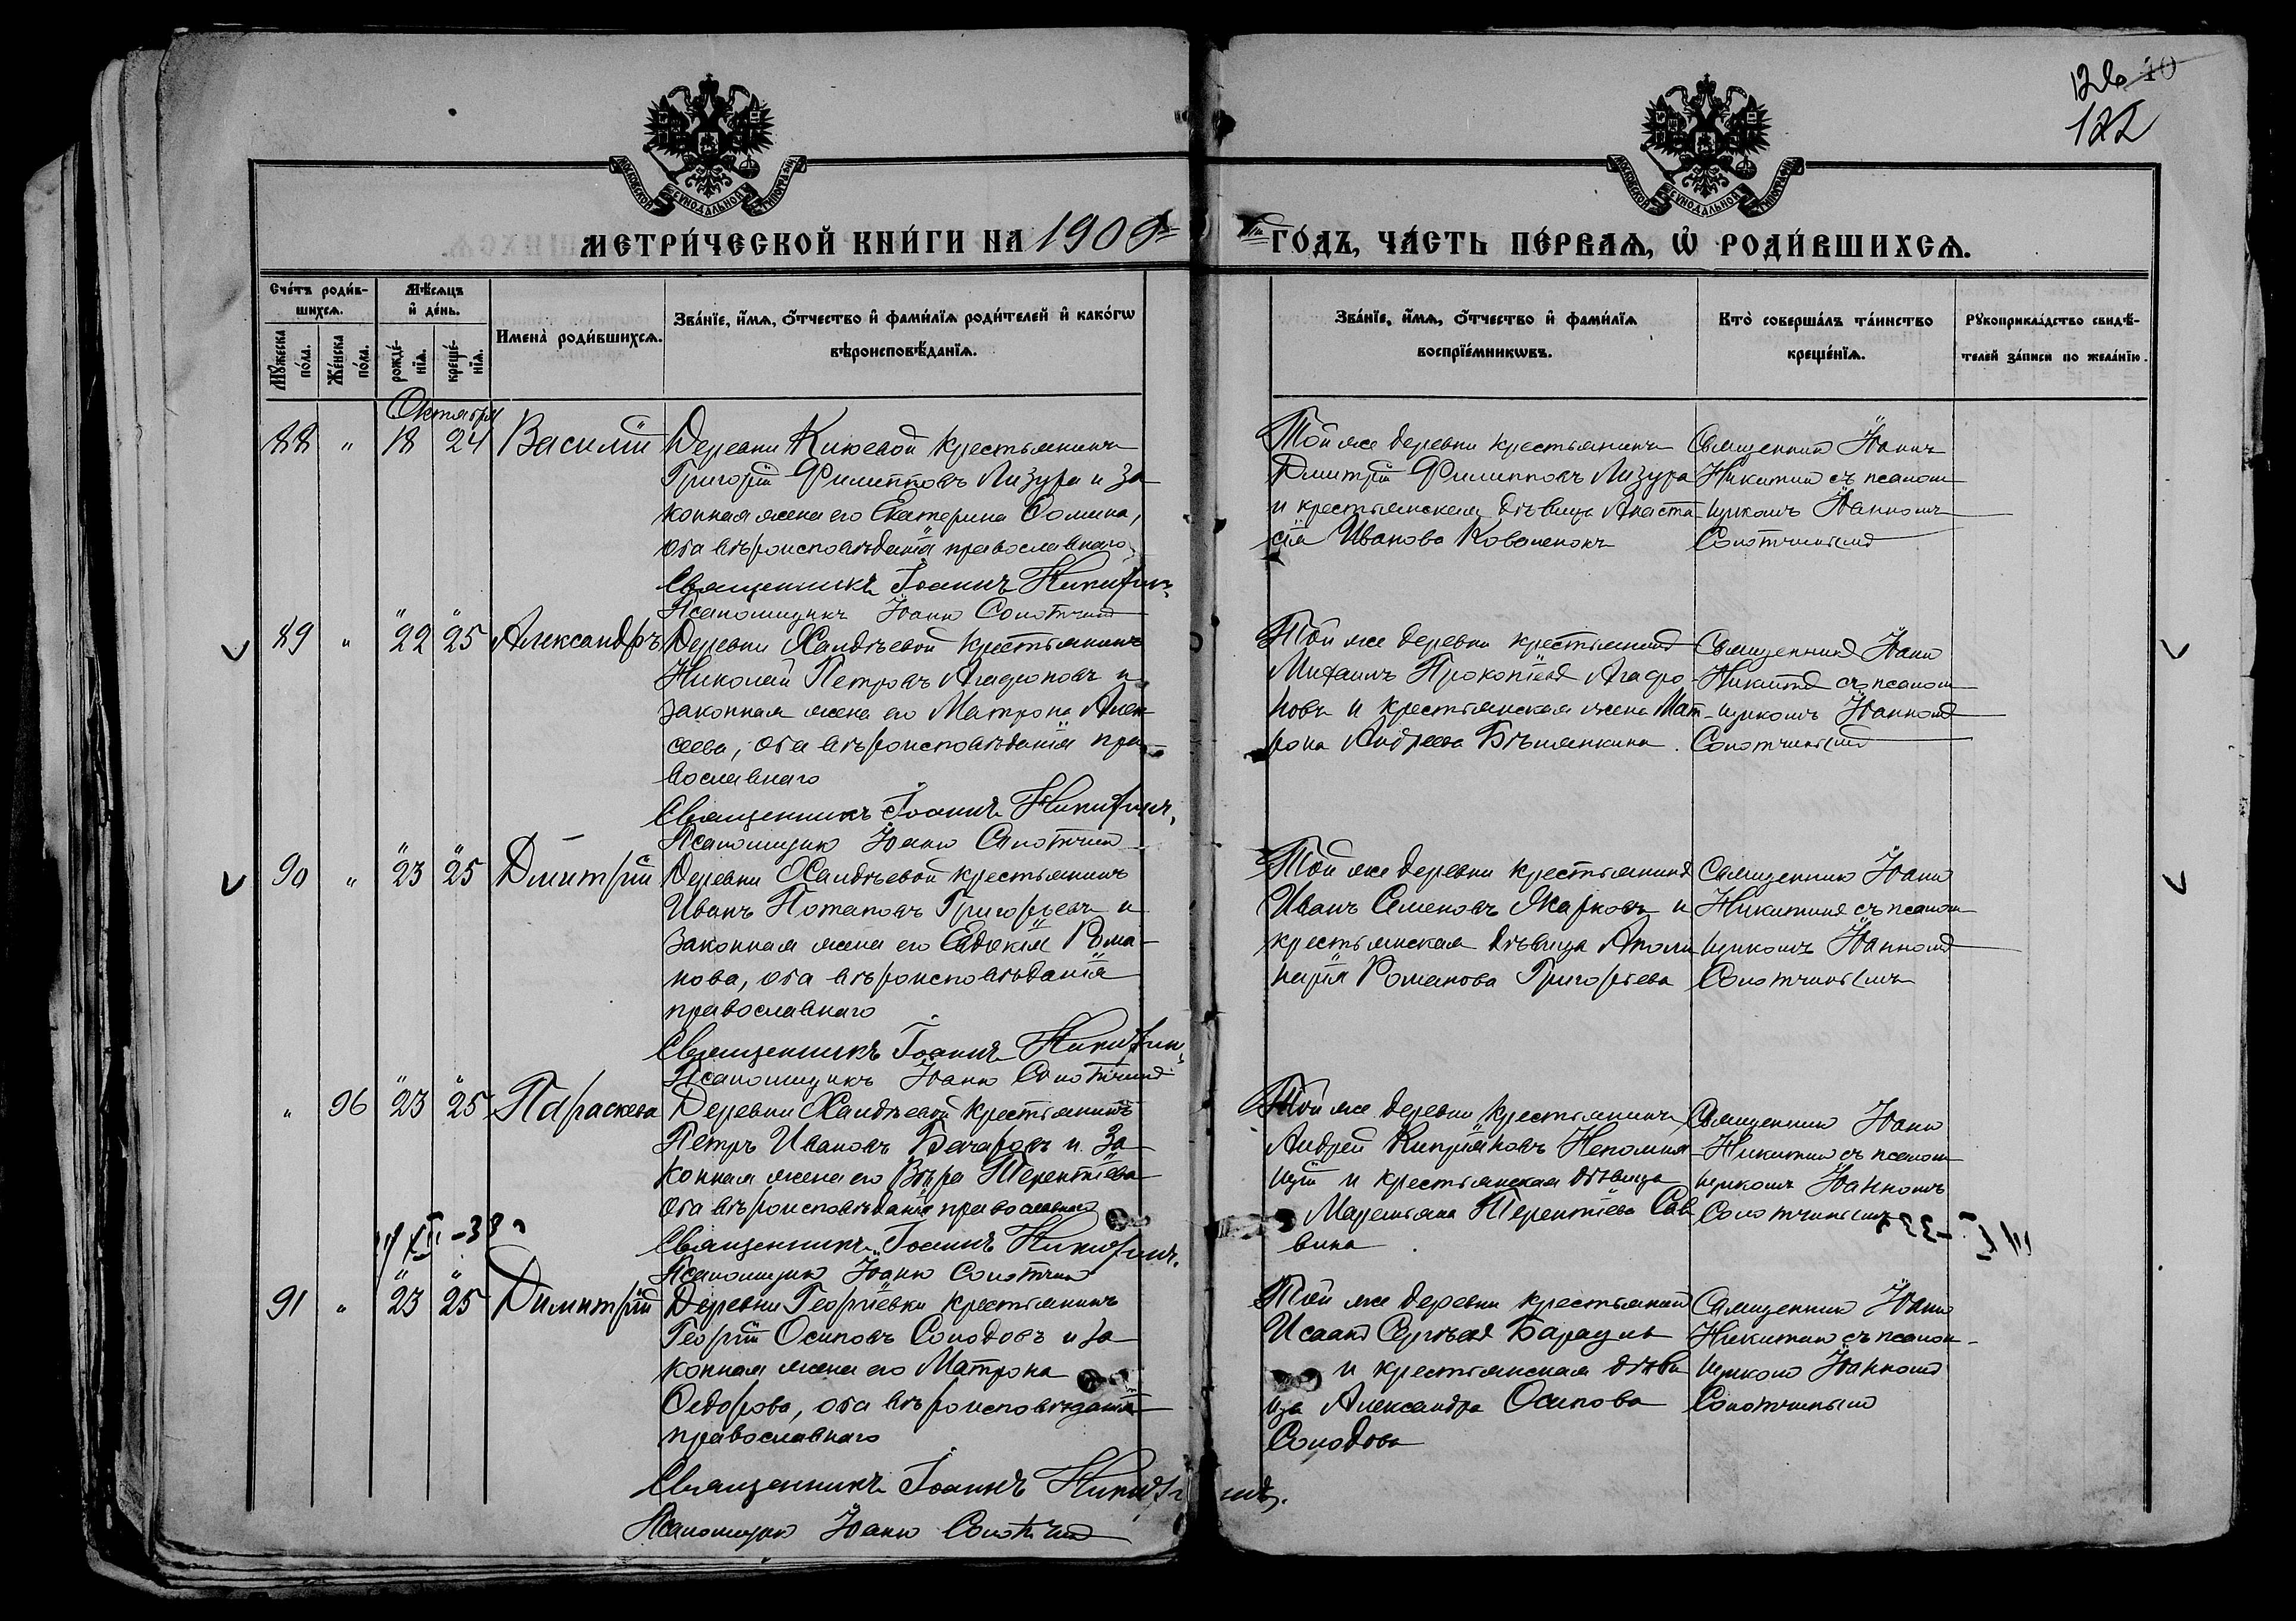 126 40
122
МОСКОВСКОЙ СѴНОДАЛЬНОЙ ТИПОГРАФІИ
МОСКОВСКОЙ СѴНОДАЛЬНОЙ ТИПОГРАФІИ
МЕТРИ́ЧЕСКОЙ КНИ́ГИ НА 1909
ГО́ДЪ, ЧА́СТЬ ПЕ́РВАѦ, Ѡ РОДИ́ВШИХСѦ.
Сче́тъ роди́в-
шихсѧ.
Мꙋжеска по́ла.
Же́нска по́ла.
Мѣ́сѧцъ
и҆ де́нь.
рожде́-нїѧ.
креще́-нїѧ.
Имена̀ роди́вшихсѧ.
Зва́нїе, и҆́мѧ, ѻ҆́тчество и҆ фами́лїѧ роди́телей и҆ како́гѡ
вѣроисповѣ́данїѧ.
Зва́нїе, и҆́мѧ, ѻ҆́тчество и҆ фами́лїѧ
воспрїе́мникѡвъ.
Кто̀ соверша́лъ та́инство
креще́нїѧ.
Рꙋкоприкла́дство свидѣ́-
телей за́писи по жела́нїю.
Октября
88 " 18 24 Василій
Деревни Киюевой крестьянинъ
Григорій Филипповъ Лизура и за
конная жена его Екатерина Фомина,
оба вѣроисповѣданія православнаго
Священникъ Іоаннъ Никитинъ
Псаломщикъ Іоаннъ
Той же деревни крестьянинъ
Дмитрій Филипповъ Лизура
и крестьянская дѣвица Анаста
сія Иванова Коваленокъ
Священникъ Іоаннъ
Никитинъ съ псалом
щикомъ Іоанномъ
89 " 22 25 Александръ
Деревни Хандѣевой крестьянинъ
Николай Петровъ Агафоновъ и
законная жена его Матрона Алек
сеева, оба вѣроисповѣданія пра-
вославнаго
Священникъ Іоаннъ Никитинъ.
Псаломщикъ Іоаннъ
Той же деревни крестьянинъ
Михаилъ Прокопіевъ Агафо-
новъ и крестьянская жена Мат-
рона Андреева Бѣлянкина.
Священникъ Іоаннъ
Никитинъ съ псалом
щикомъ Іоанномъ
90 " 23 25 Дмитрій
Деревни Хандѣевой крестьянинъ
Иванъ Потаповъ Григорьевъ и
законная жена его Евдокія Рома-
нова, оба вѣроисповѣданія
православнаго
Священникъ Іоаннъ Никитинъ
Псаломщикъ Іоаннъ
Той же деревни крестьянинъ
Иванъ Семеновъ Жарковъ и
крестьянская дѣвица Аполи
нарія Романова Григорьева
Священникъ Іоаннъ
Никитинъ съ псалом
щикомъ Іоанномъ
" 96 23 25 Параскева
Деревни Хандѣевой крестьянинъ
Петръ Ивановъ Бочаровъ и за
конная жена его Вѣра Терентіева
оба вѣроисповѣданія православнаго
Священникъ Іоаннъ Никитинъ.
Псаломщикъ Іоаннъ
Той же деревни крестьянинъ
Андрей Кипріяновъ Непомня-
щій и крестьянская дѣвица
Терентіева Сав
вина
Священникъ Іоаннъ
Никитинъ съ псалом
щикомъ Іоанномъ
91 " 23 25 Димитрій
Деревни Георгіевки крестьянинъ
Георгій Осиповъ Солодовъ и за
конная жена его Матрона
Федорова, оба вѣроисповѣданія
православнаго
Священникъ Іоаннъ Никитинъ.
Псаломщикъ Іоаннъ
Той же деревни крестьянинъ
Исаакъ Сергѣевъ
и крестьянская дѣви
ца Александра Осипова
Солодова
Священникъ Іоаннъ
Никитинъ съ псалом-
щикомъ Іоанномъ